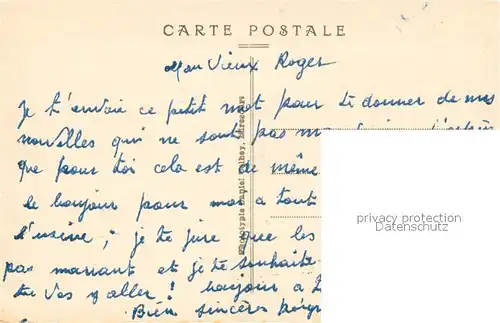 CARTE POSTALE
Mon Vieux Roger
Je t'envoie ce petit mot pour te donner de mes
nouvelles qui ne sont pas
que pour toi cela est de même
le bonjour pour moi a tout
l'usine, je te jure que les
pas marrant et je te souhaite
tu vas y aller ! bonjour a
Bien sincères poign
privacy protection
Datenschutz